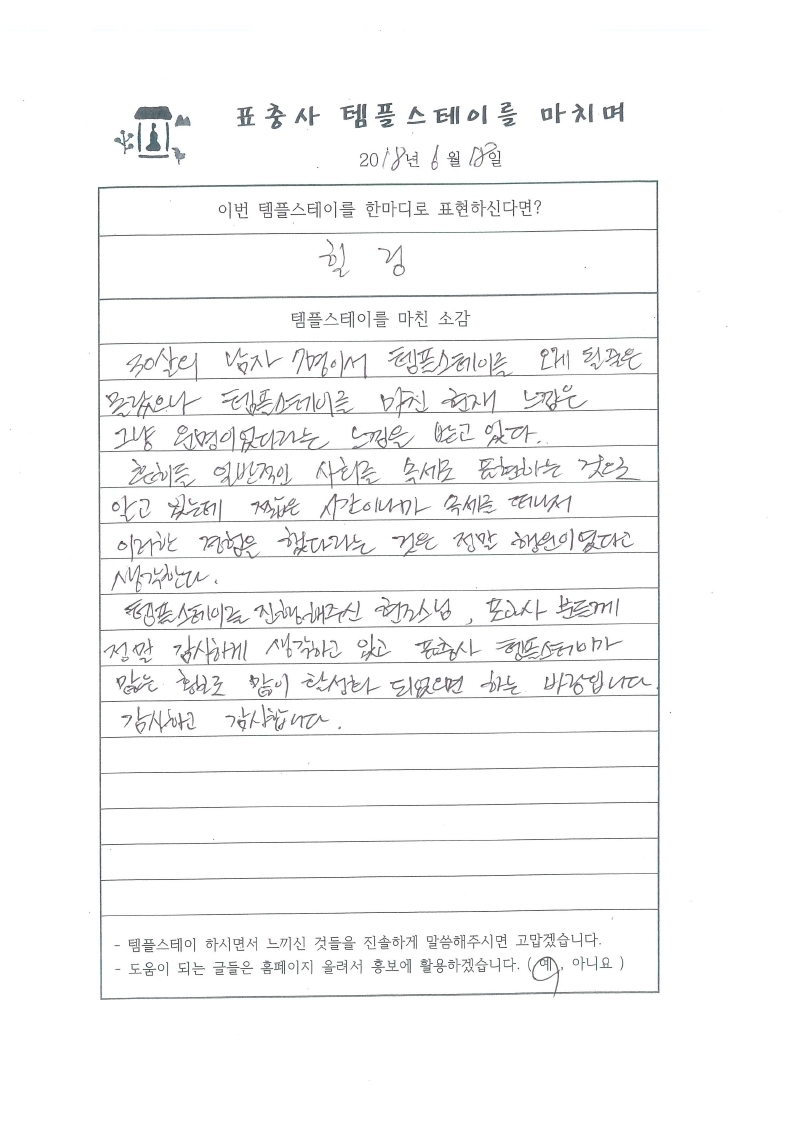 표충사 템플스테이를 마치며
2018년 6월 18일
이번 템플스테이를 한마디로 표현하신다면?
힐링
템플스테이를 마친 소감
30살의 남자 7명이서 템플스테이를 오게 될줄은
몰랐으나 템플스테이를 마친 현재 느낌은
그냥 운명이었다라는 느낌을 받고 있다.
흔히들 일반적인 사회를 속세로 표현하는 것으로
알고 있는데 짧은 시간이나마 속세를 떠나서
이러한 경험을 했다라는 것은 정말 행운이었다고
생각한다.
템플스테이를 진행해주신 스님, 분들께
정말 감사하게 생각하고 있고 표충사 템플스테이가
많은 홍보로 많이 활성화 되었으면 하는 바람입니다.
감사하고 감사합니다.
- 템플스테이 하시면서 느끼신 것들을 진솔하게 말씀해주시면 고맙겠습니다.
- 도움이 되는 글들은 홈페이지 올려서 홍보에 활용하겠습니다. ( 예 , 아니요 )